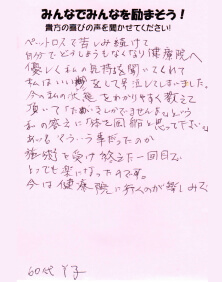 みんなでみんなを励まそう!
貴方の喜びの声を聞かせてください!
ペットロスで苦しみ続けて
自分でどうしようもなくなり健康院へ
優しく私の気持を聞いてくれて
私はいい 号泣してしまいました。
今の私の状態をわかりやすく教えて
頂いて「ためしてみますか」という
私の答えに「体を図鑑と思って下さい」
施術を受け終えた一回目で
とっても楽になったのです。
今は健康院に行くのが楽しみで
60代 Y子